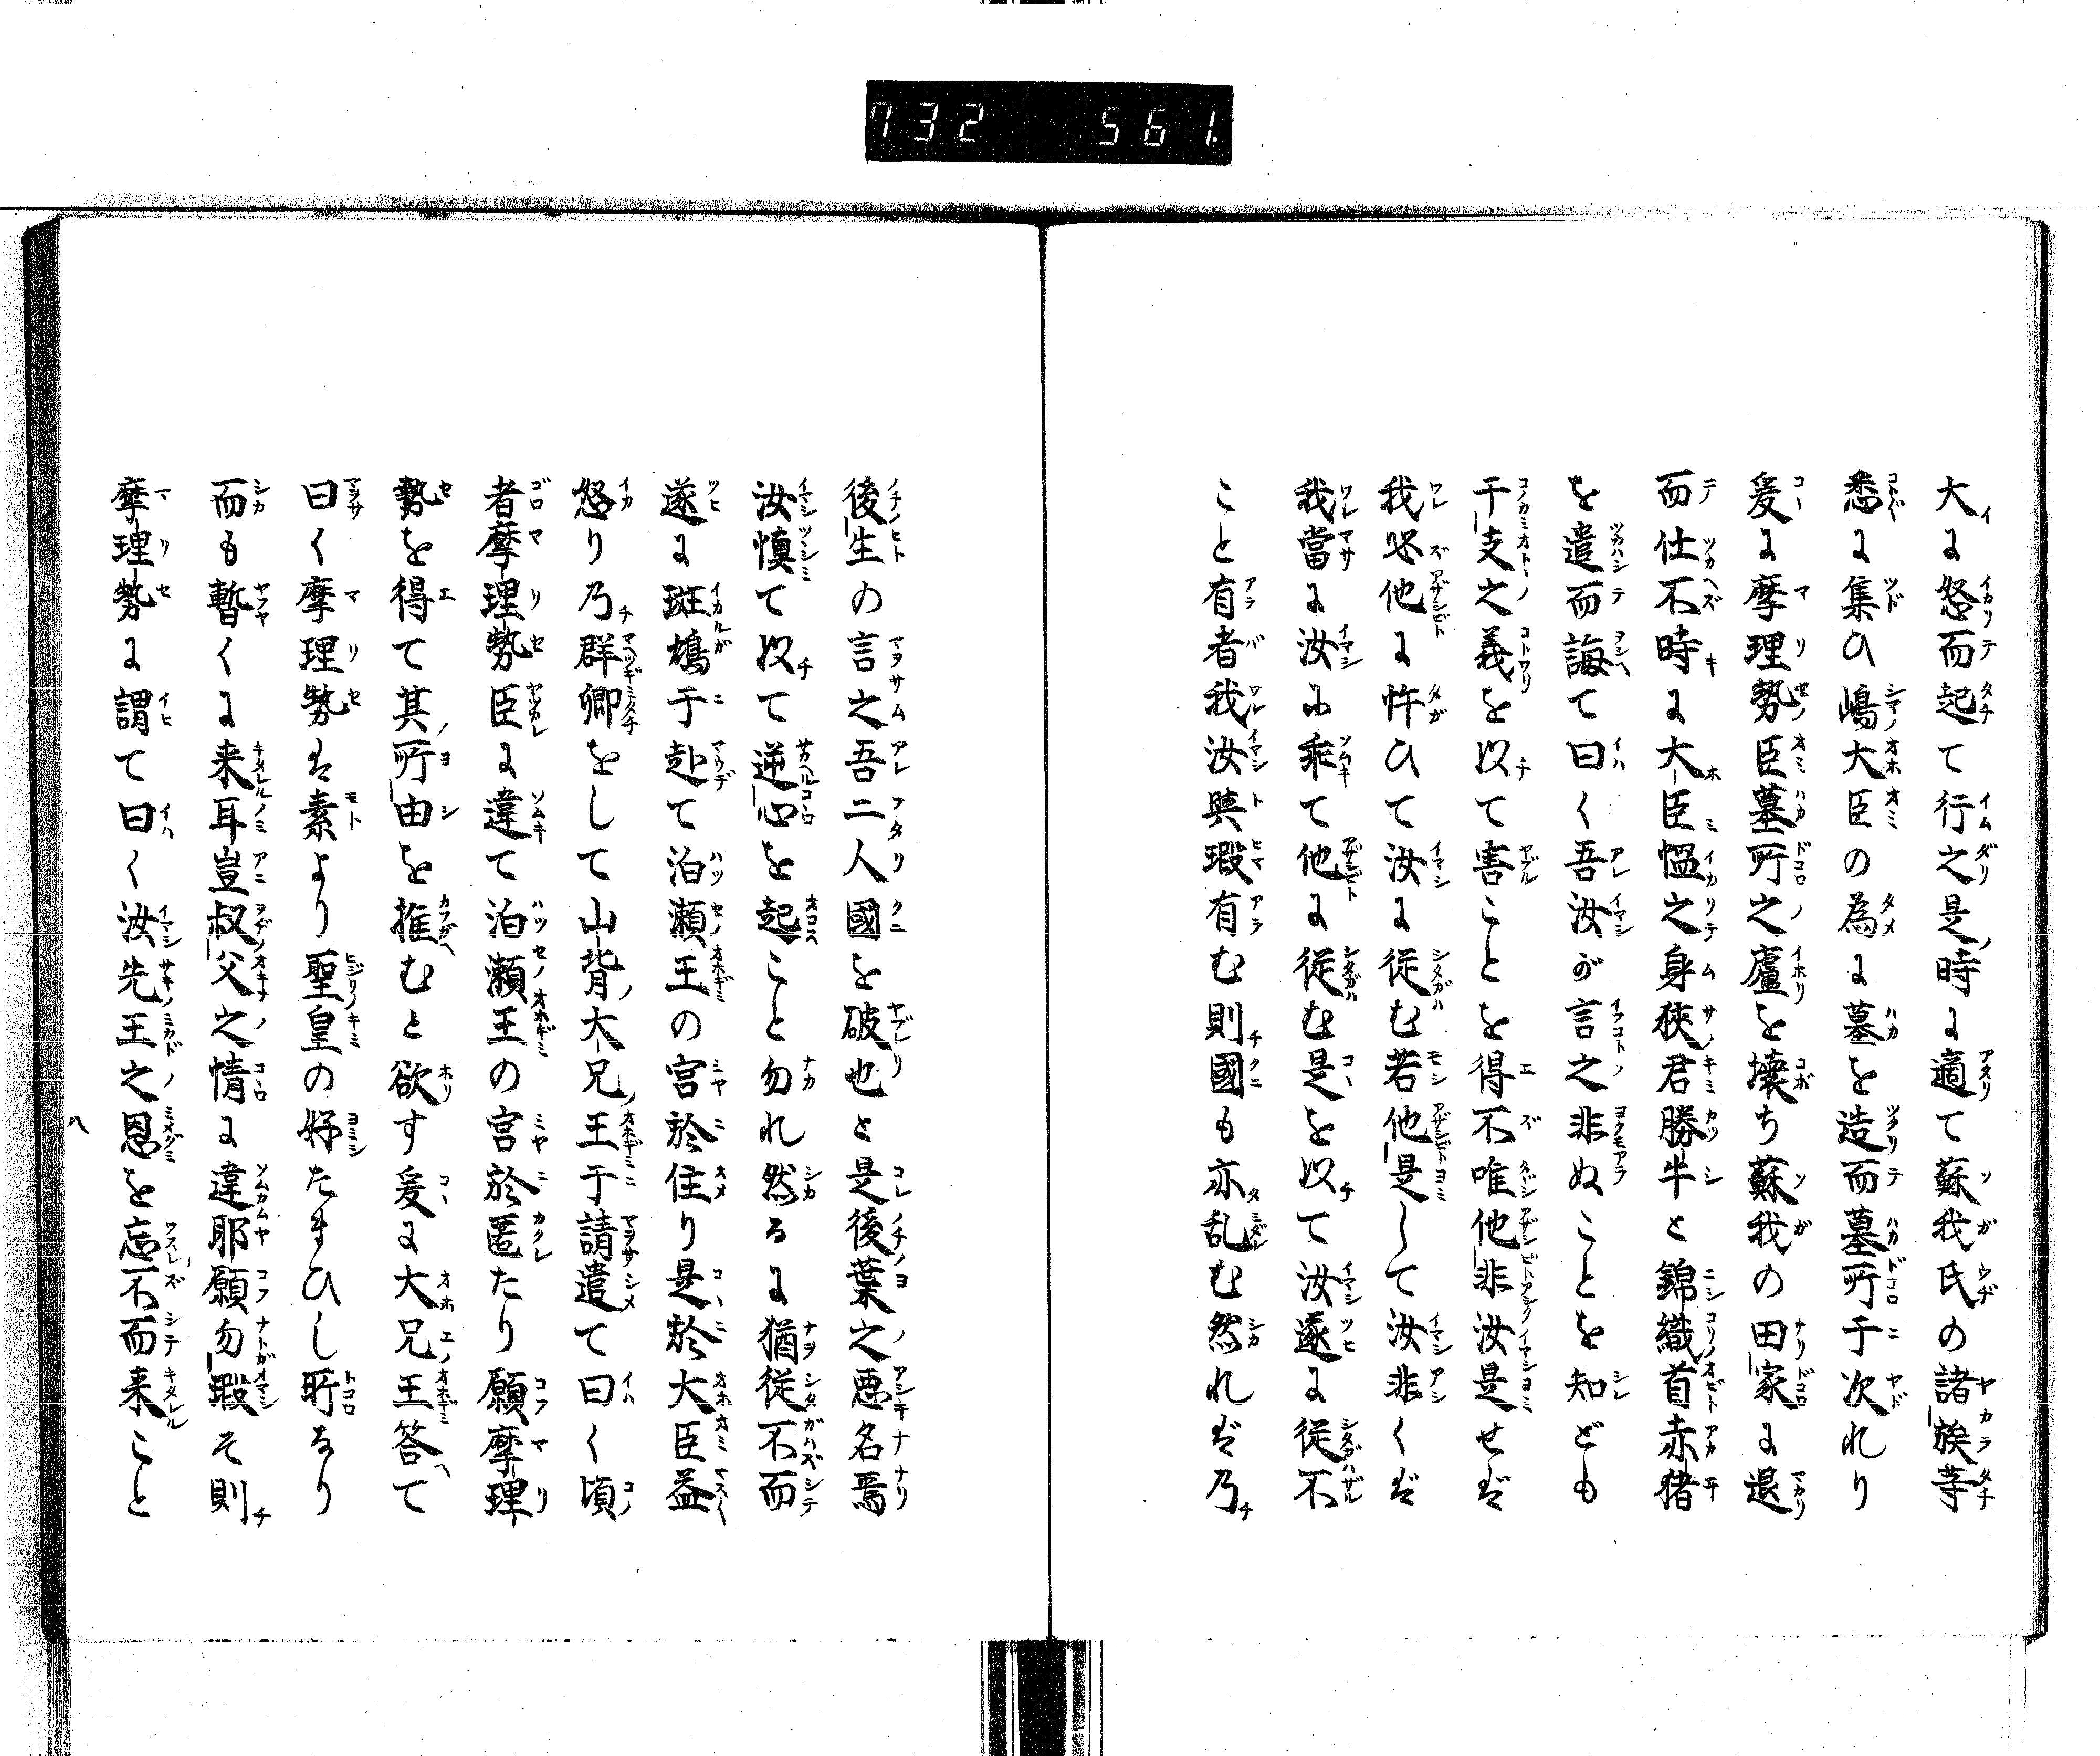 732 561
大に怒而起て行之是時に適て蘇我氏の諸族等
悉に集ひ嶋大臣の為に墓を造而墓所于次れり
爰に摩理勢臣墓所之廬を壊ち蘇我の田家に退
而仕不時に大臣慍之身狹君勝牛と錦織首赤猪
を遣而誨て曰く吾汝が言之非ぬことを知ども
干支之義を以て害ことを得不唯他非汝是せば
我必他に忤ひて汝に従む若他是して汝非くば
我當に汝に乖て他に従む是を以て汝遂に従不
こと有者我汝與瑕有む則國も亦乱む然れば乃
後生の言之吾二人國を破也と是後葉之悪名焉
汝慎て以て逆心を起こと勿れ然るに猶従不而
遂に斑鳩于赴て泊瀬王の宮於住り是於大臣益
怒り乃群卿をして山背大兄王于請遣て曰く頃
者摩理勢臣に違て泊瀬王の宮於匿たり願摩理
勢を得て其所由を推むと欲す爰に大兄王答て
曰く摩理勢は素より聖皇の好たまひし所なり
而も暫くに来耳豈叔父之情に違耶願勿瑕そ則
摩理勢に謂て曰く汝先王之恩を忘不而来こと
八